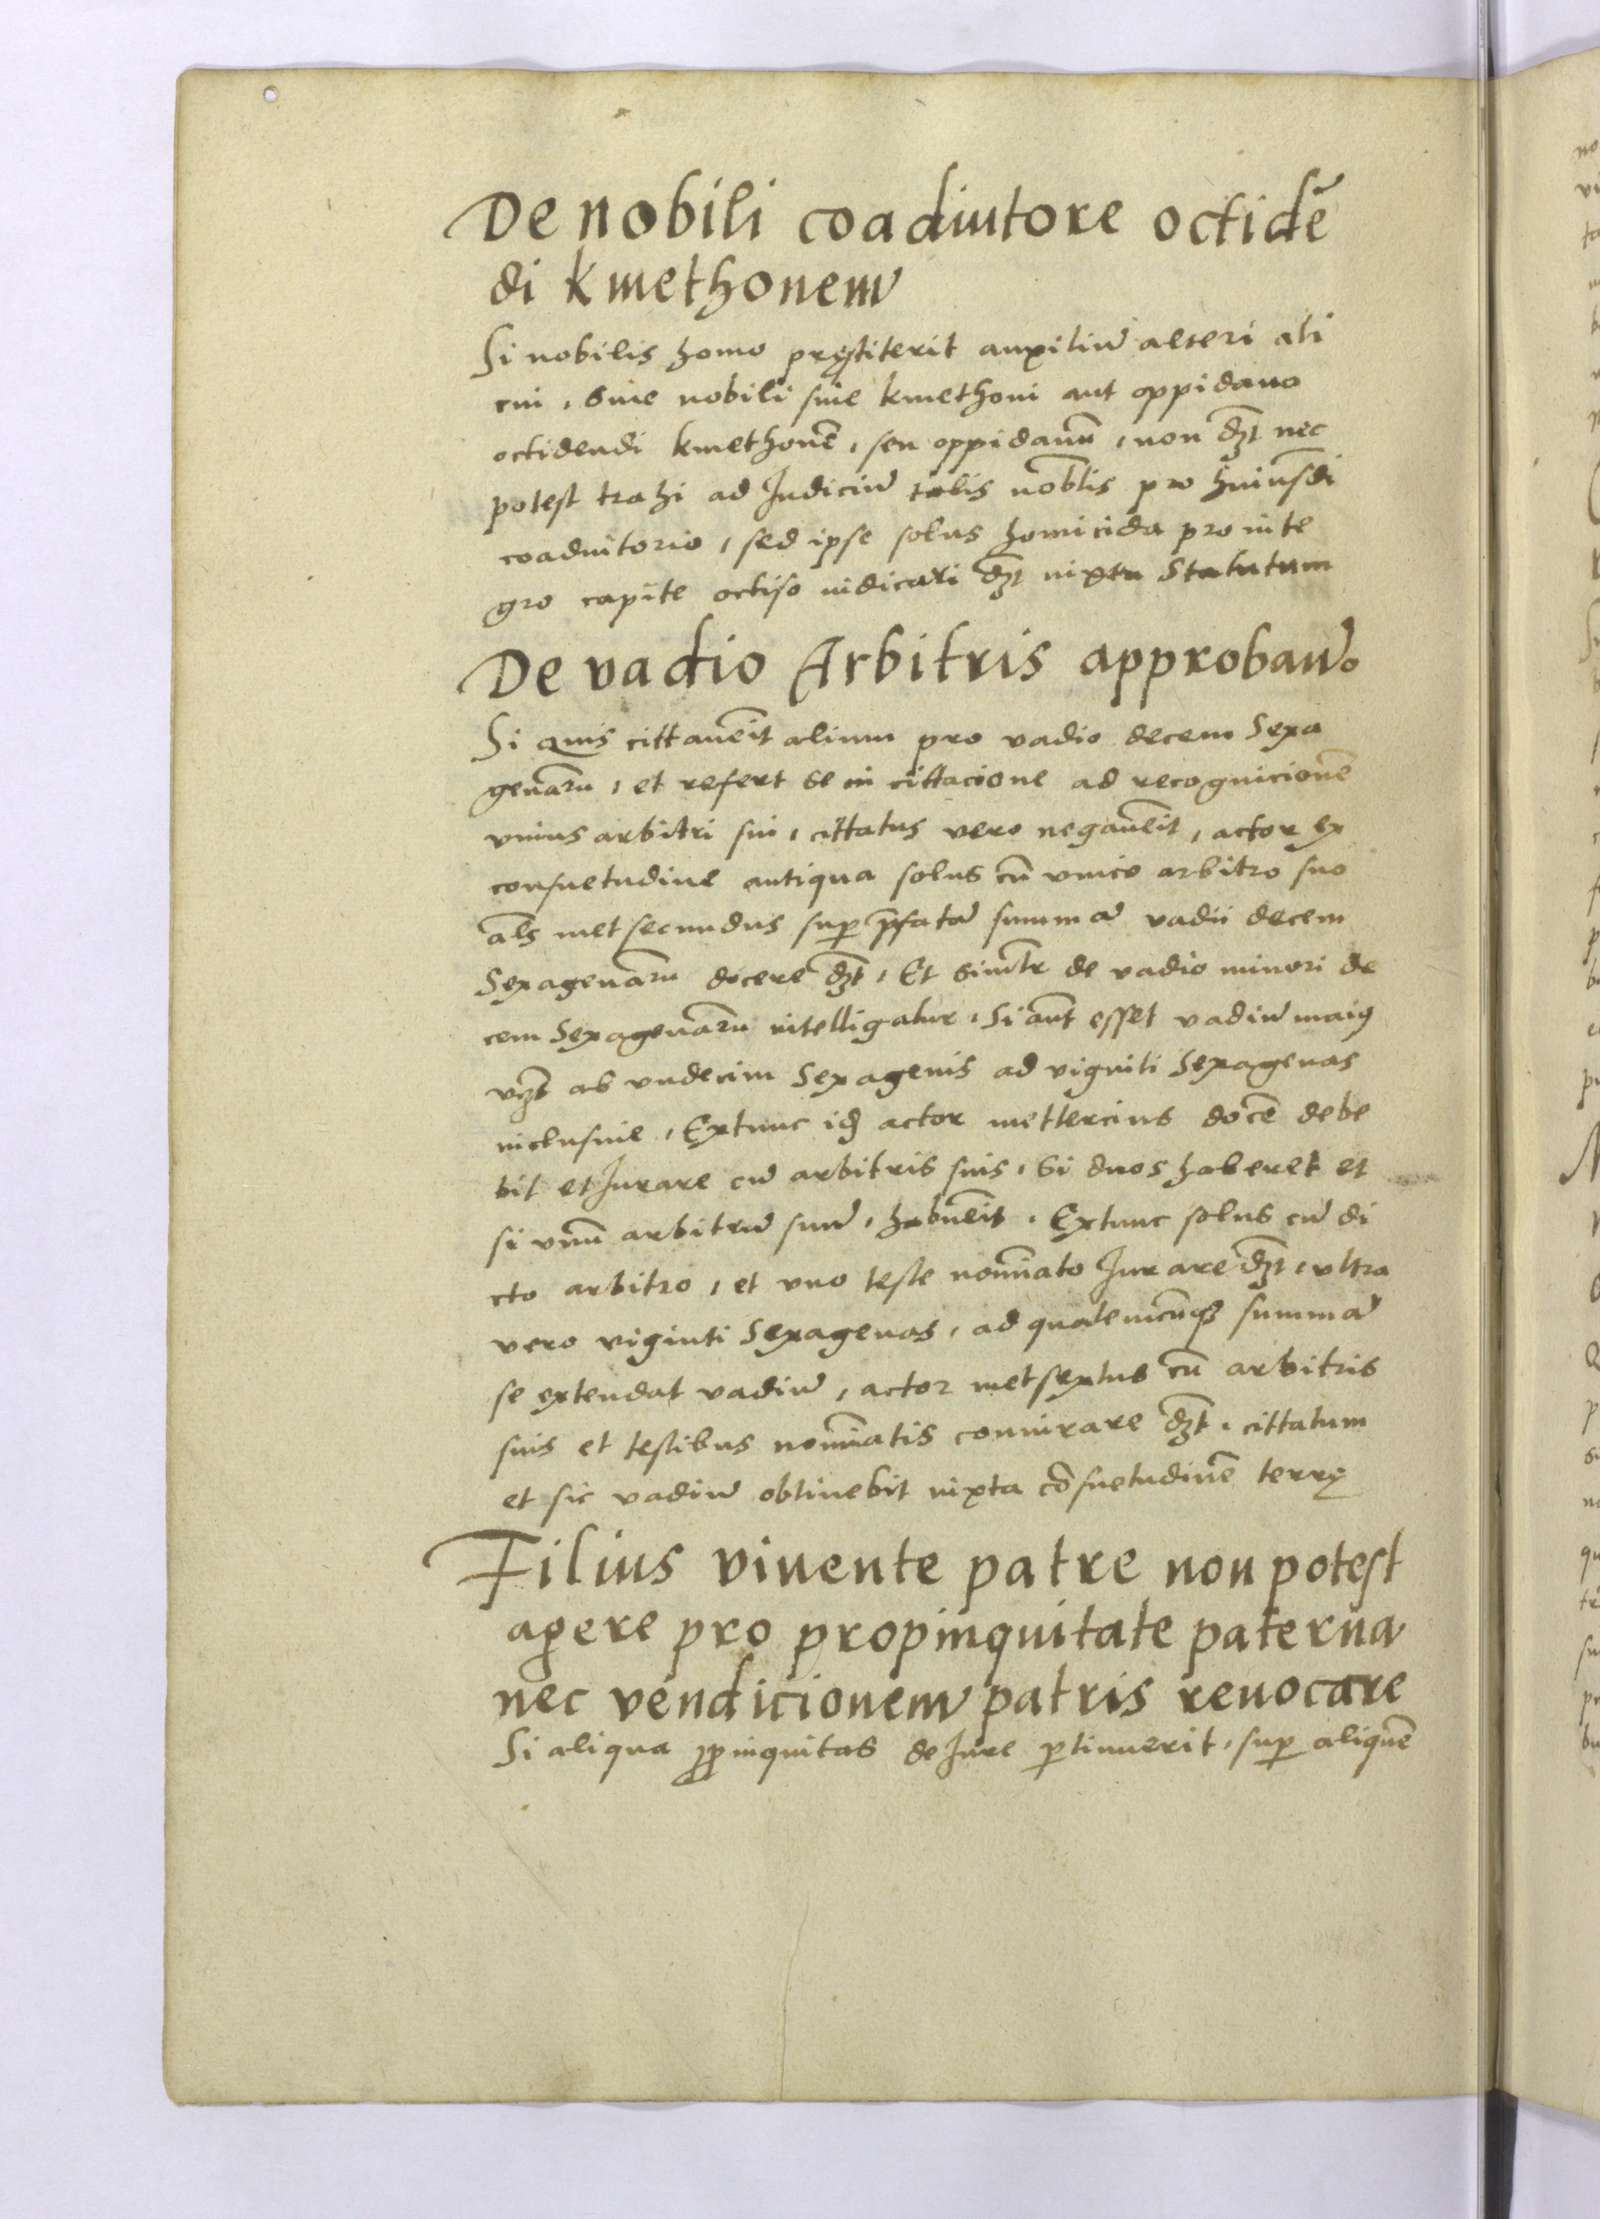 De nobili coadiutore occidē
di kmethonem
Si nobilis homo pręstiterit auxiliū alteri ali
cui, siue nobili siue kmethoni aut oppidano
occidendi kmethonē, seu oppidanū, non dꝫt nec
potest trahi ad Iudiciū talis nobĩlis pro huiusđi
coadiutorio, sed ipse solus homicida pro inte
gro capite occiso iudicari dꝫt iuxta Statutum
De vadio Arbitris approbando
Si quis cittauēit alium pro vadio decem Sexa
genarū, et refert se in cittacione ad recognicionē
vnius arbitri sui, cittatus vero negauēit, actor ex
consuetudine antiqua solus cū vnico arbitro suo
als̄ met secundus suꝑ p̄fatā summā vadii decem
Sexagenarū docere dꝫt, Et simĩlr de vadio minori de
cem Sexagenarū intelligatur, Si aūt esset vadiū maiꝰ
vꝫt ab vndecim Sexagenis ad viginti Sexagenas
inclusiue, Extunc iđ actor mettercius docē debe
bit et Iurare cū arbitris suis, si duos haberet et
si vnū arbitrū suū, habuēit, Extunc solus cū di
cto arbitro, et vno teste nomīnato Iurare dꝫt, vltra
vero viginti Sexagenas, ad qualemcūqꝫ summā
se extendat vadiū, actor met sextus cū arbitris
suis et testibus nomīnatis conuirare dꝫt, cittatum
et sic vadiū obtinebit iuxta cōsuetudinē terrę
Filius viuente patre non potest
agere pro propinquitate paterna
nec vendicionem patris reuocare
Si aliqua ꝓpinquitas de Iure ꝑtinuerit, suꝑ aliquē